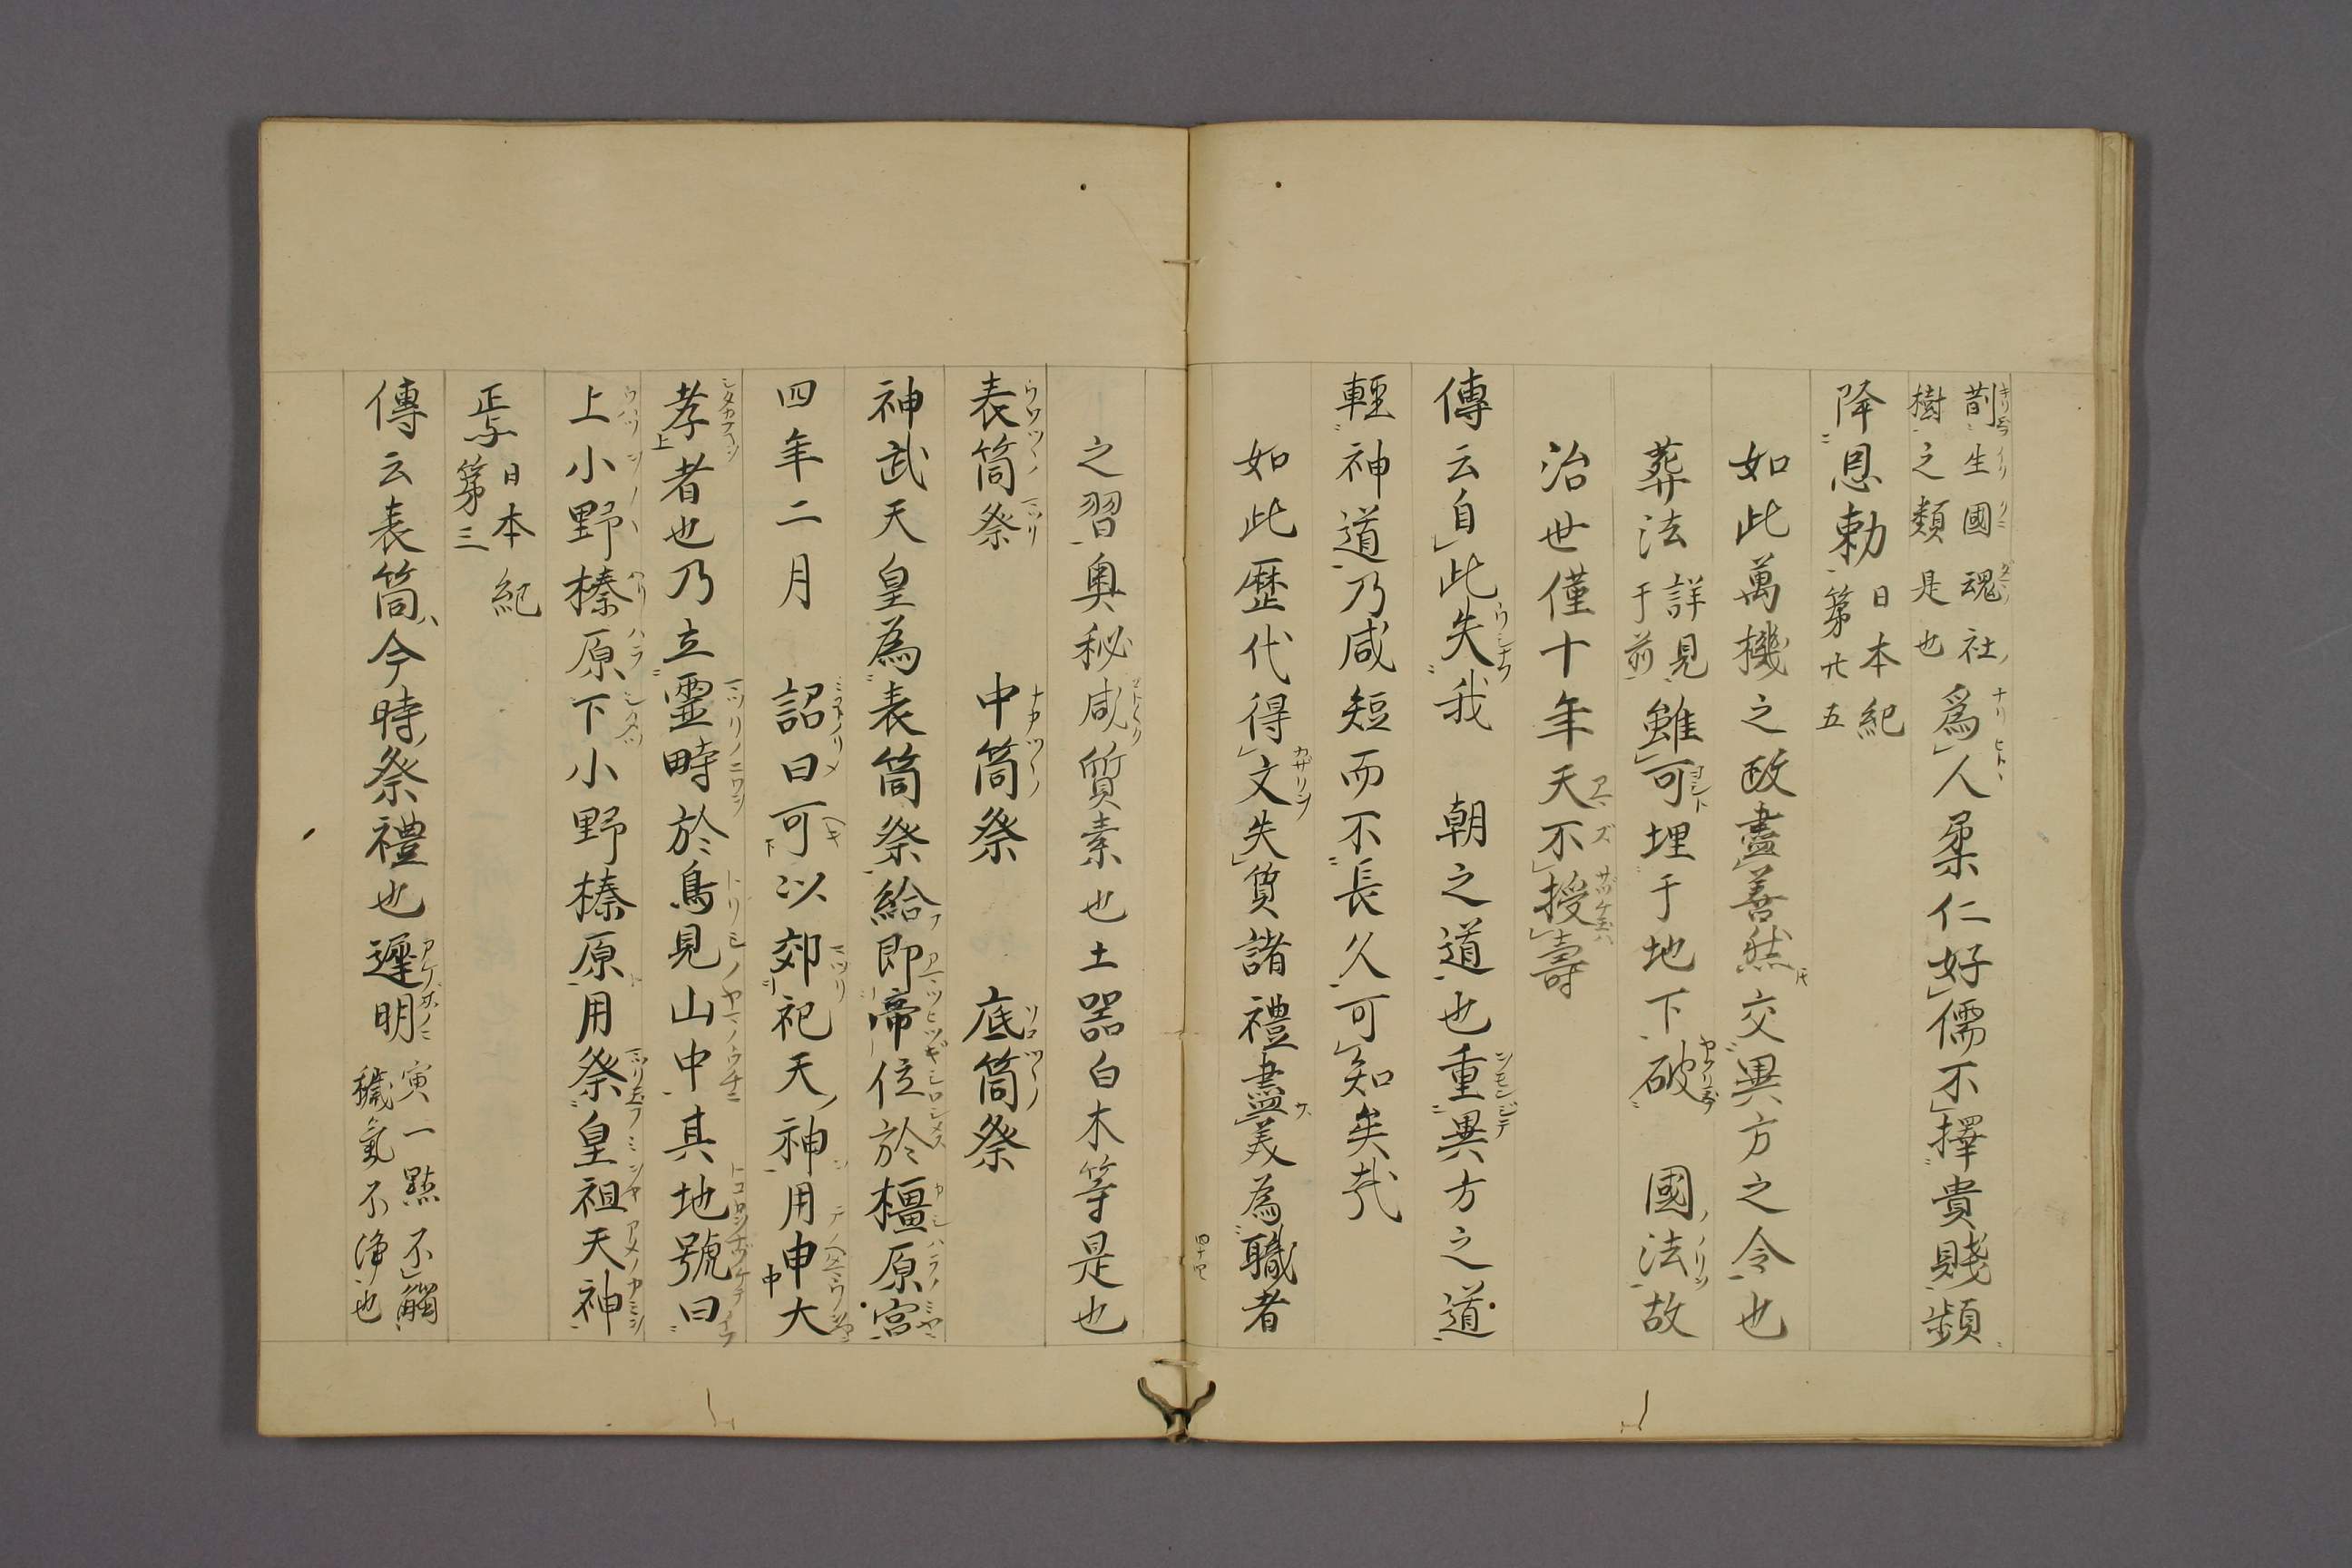 㓮生國魂社
樹之類是也
爲人柔仁好儒不擇貴賤頻
降恩勅
日本紀
第廿五
如此萬機之政盡善然交異方之令也
葬法
詳見
于前
雖可埋于地下破 國法故
治世僅十年天不授壽
傳云自此失我 朝之道也重異方之道
輕神道乃咸短而不長久可知矣哉
如此歷代得文失質諸禮盡美為職者
四十四
之習奥秘咸質素也土器白木等是也
表筒祭 中筒祭 底筒祭
神武天皇為表筒祭給即帝位於橿原宮
四年二月 詔曰可以郊祀天神用申大
孝者也乃立霊畤於鳥見山中其地號曰
上小野榛原下小野榛原用祭皇祖天神
焉
日本紀
第三
傳云表筒今時祭禮也遲明
寅一點不觸
穢氣不淨也